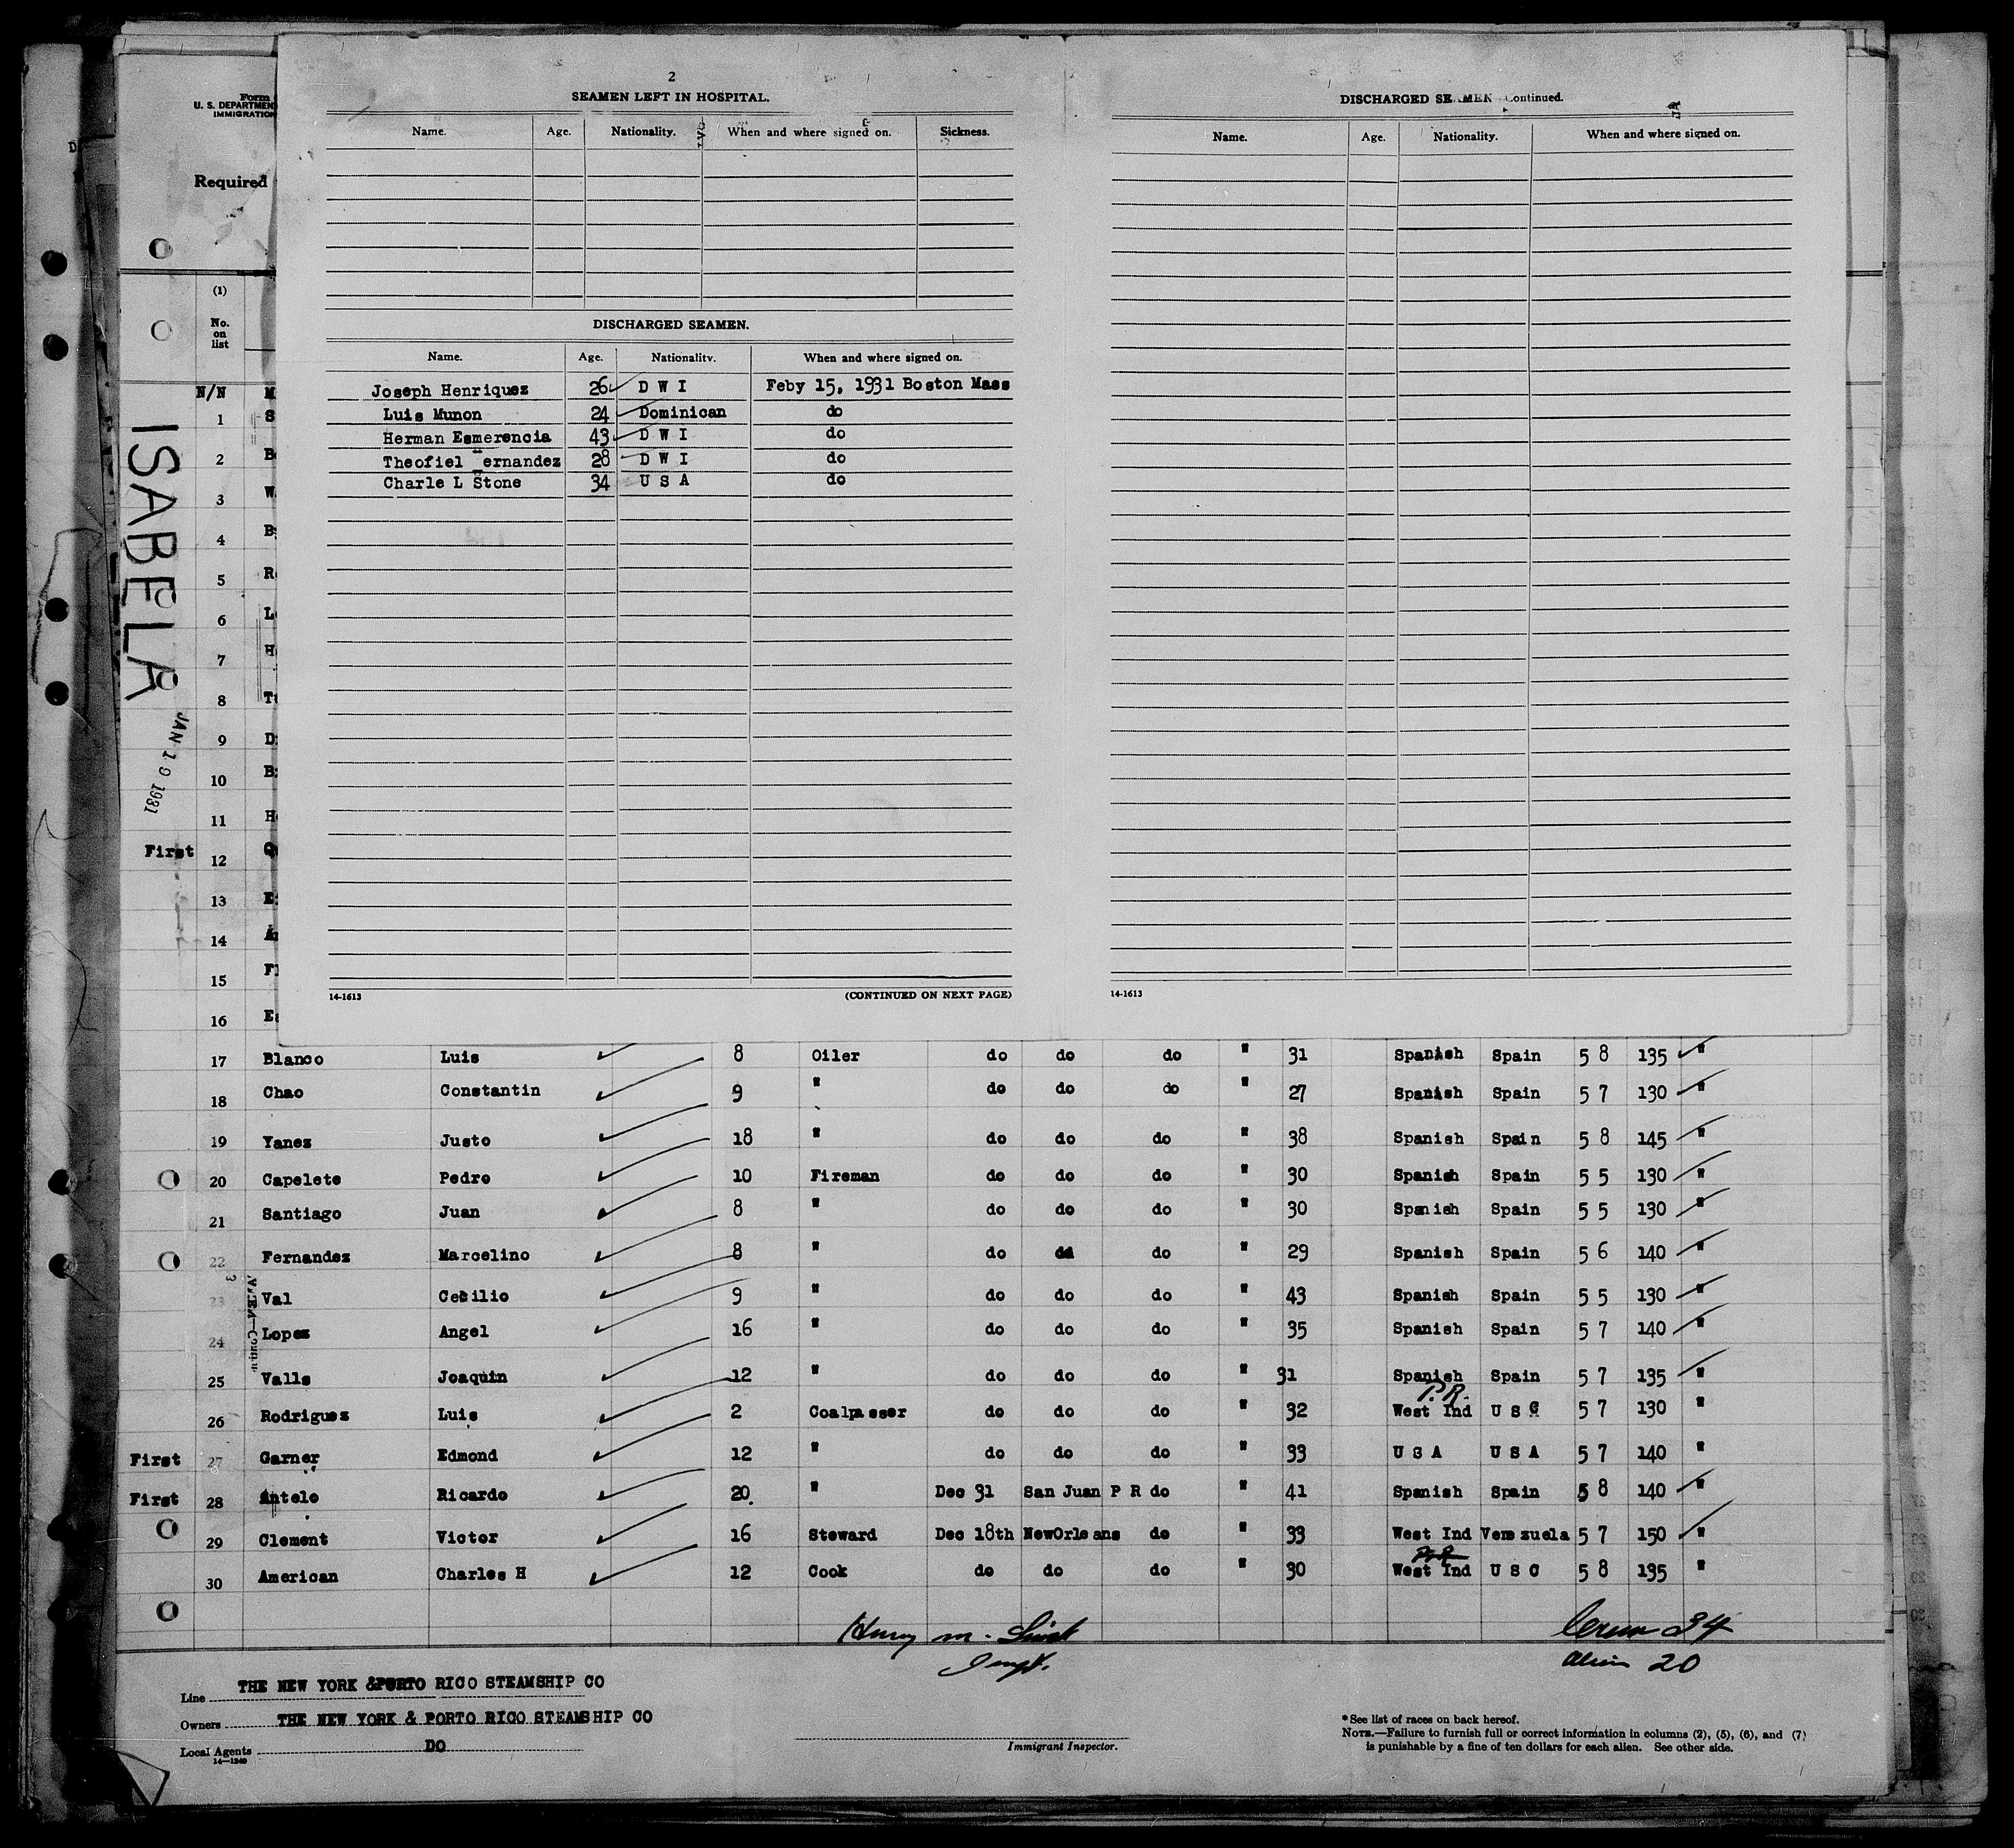 2
SEAMEN LEFT IN HOSPITAL.
Name. Age. Nationality. When and where signed on. Sickness.
DISCHARGED SEAMEN.
Name. Age. Nationality. When and where signed on.
Joseph Henriquez 26 D W I Feby 15, 1931 Boston Mass
Luis Munon 24 Dominican do
Herman Esmerencia 43 D W I do
Theofiel ernandez 28 D W I do
Charle L Stone 34 U S A do
14-1613 (CONTINUED ON NEXT PAGE)
DISCHARGED SEAMEN Continued.
Name. Age. Nationality. When and where signed on.
14-1613
Form
U. S. DEPARTMEN
IMMIGRATION
Required
(1)
No.
on
list
N/N M
1 S
2 B
3 W
4 B
5 R
6 L
7 H
8 T
9 D
10 B
11 H
First 12 Q
13 E
14 A
15 F
16 E
ISABELA
JAN 19 1931
17 Blanco Luis 8 Oiler do do do " 31 Spanish Spain 5 8 135 "
18 Chao Constantin 9 " do do do " 27 Spanish Spain 5 7 130 "
19 Yanez Justo 18 " do do do " 38 Spanish Spain 5 8 145 "
20 Capelete Pedro 10 Fireman do do do " 30 Spanish Spain 5 5 130 "
21 Santiago Juan 8 " do do do " 30 Spanish Spain 5 5 130 "
22 Fernandez Marcelino 8 " do do do " 29 Spanish Spain 5 6 140 "
23 Val Cecilio 9 " do do do " 43 Spanish Spain 5 5 130 "
24 Lopez Angel 16 " do do do " 35 Spanish Spain 5 7 140 "
25 Valls Joaquin 12 " do do do " 31 Spanish Spain 5 7 135 "
P.R.
26 Rodriguez Luis 2 Coalpasser do do do " 32 West Ind U S C 5 7 130 "
First 27 Garner Edmond 12 " do do do " 33 U S A U S A 5 7 140 "
First 28 Antelo Ricardo 20 " Dec 31 San Juan P R do " 41 Spanish Spain 5 8 140 "
29 Clement Victor 16 Steward Dec 18th NewOrleans do " 33 West Ind Venezuela 5 7 150 "
30 American Charles H 12 Cook do do do " 30 West Ind U S C 5 8 135 "
Henry M.
Inspt.
34
Alien 20
Line THE NEW YORK & PORTO RICO STEAMSHIP CO
Owners THE NEW YORK & PORTO RICO STEAMSHIP CO
Local Agents DO
14-1240
Immigrant Inspector.
*See list of races on back hereof.
NOTE.—Failure to furnish full or correct information in columns (2), (5), (6), and (7)
is punishable by a fine of ten dollars for each alien. See other side.